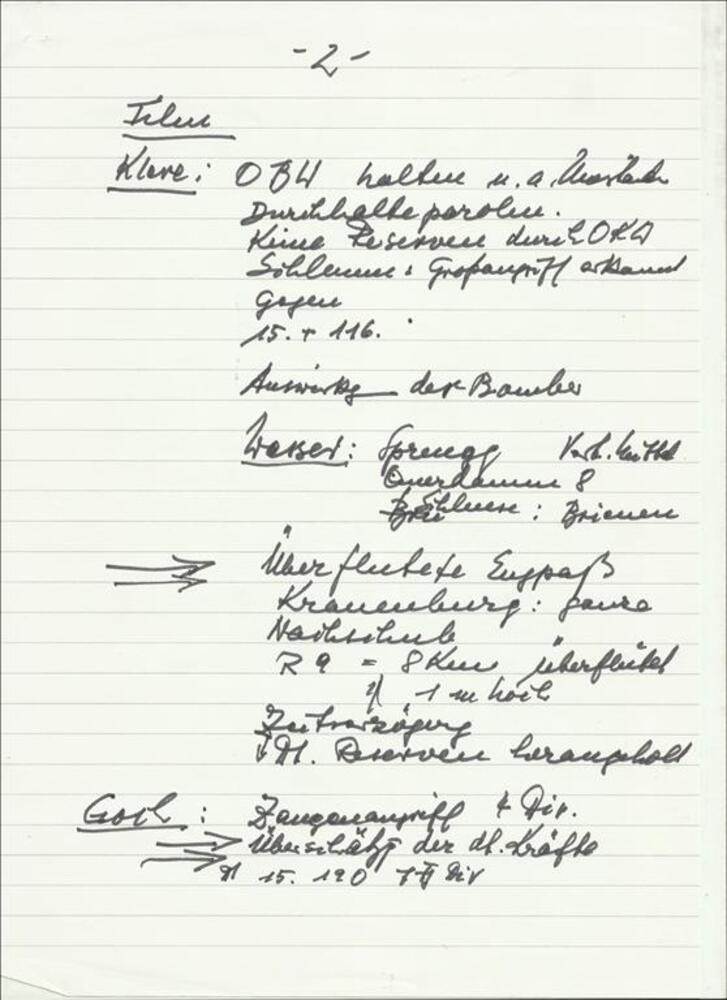 - 2 -
Film
Kleve: OBW halten u. a.
Durchhalteparolen.
Keine Reserven durch OKW
Schlemm: Großangriff erkannt
gegen
15. + 116.
Auswirkg der Bomber
Wasser: Sprengg
Querdamm 8
Schleuse: Brienen
Überflutete Engpaß
Kranenburg: ganze
Nachschub
R 9 = 8 Km überflutet
1 m hoch
Zeitverzögerung
Dt. Reserven herangeholt
Goch: Zangenangriff 4 Div.
Überschätzg der dt. Kräfte
15. 190 Div